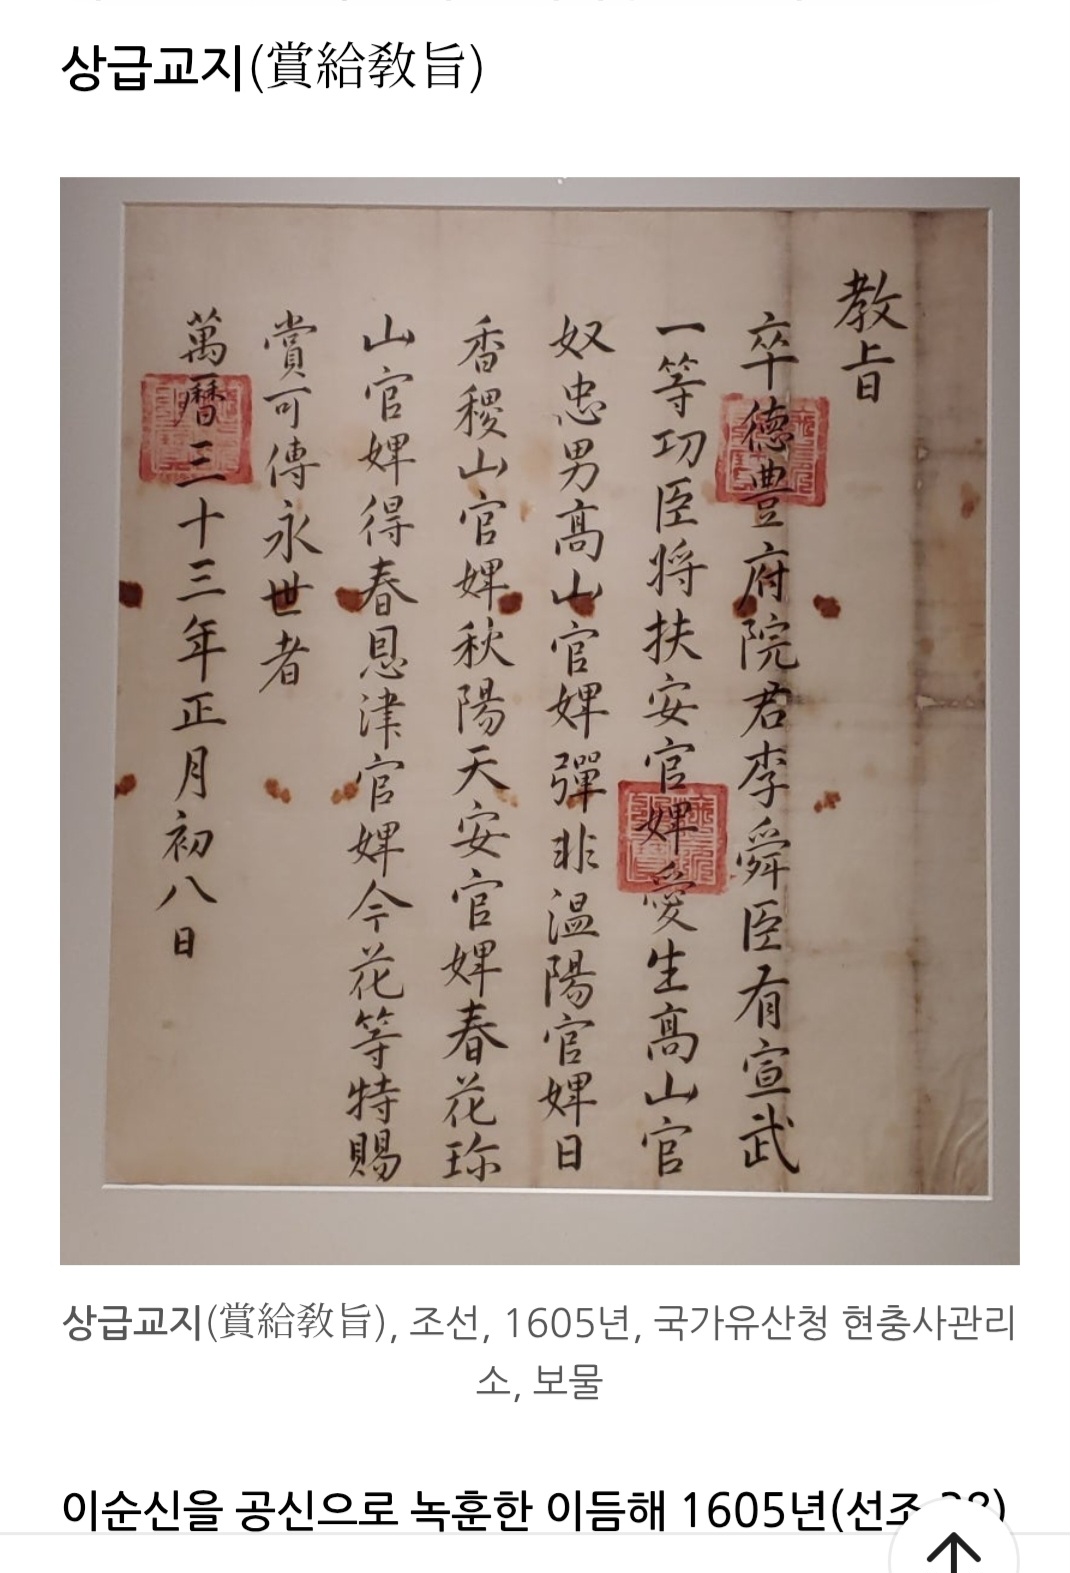 상급교지(賞給敎旨)
教旨
卒德豊府院君李舜臣有宣武
一等功臣將扶安官婢愛生高山官
奴忠男高山官婢彈非温陽官婢日
香稷山官婢秋陽天安官婢春花珎
山官婢得春恩津官婢今花等特賜
賞可傳永世者
萬曆三十三年正月初八日
상급교지(賞給敎旨), 조선, 1605년, 국가유산청 현충사관리
소, 보물
이순신을 공신으로 녹훈한 이듬해 1605년(선조